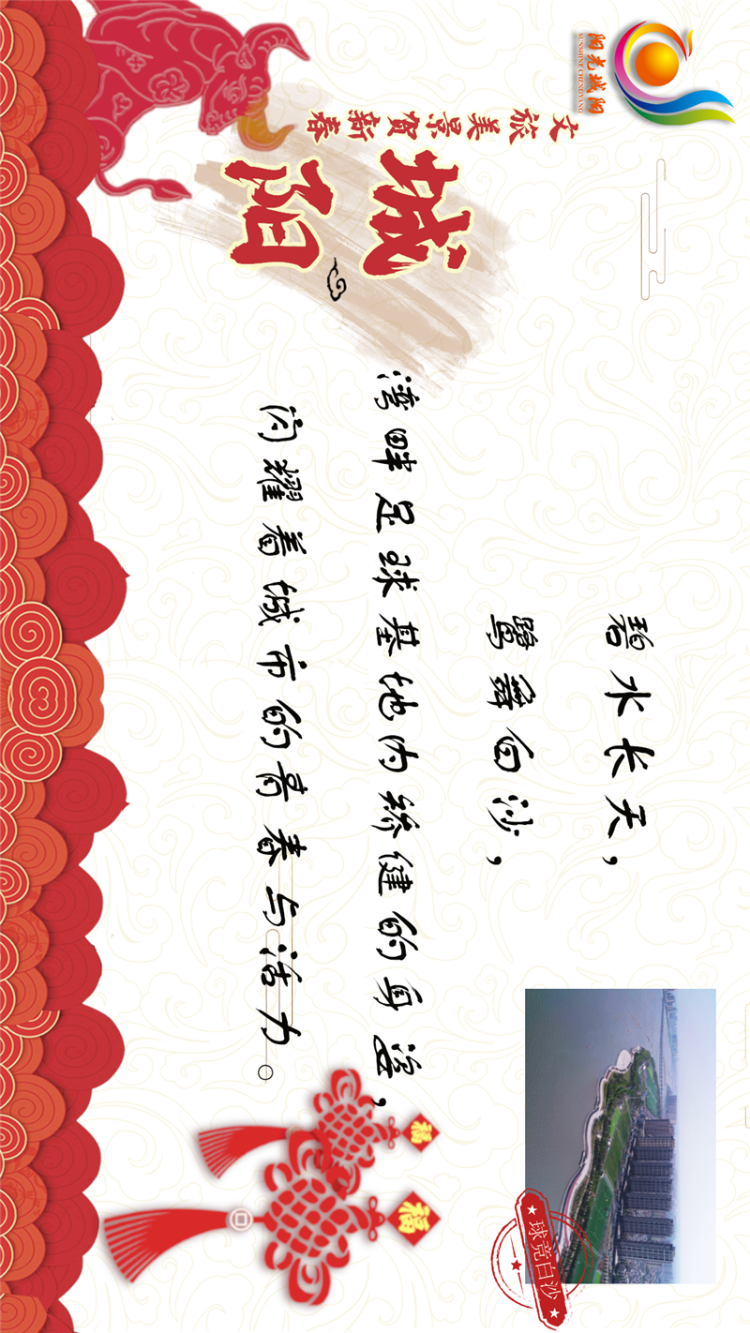 阳光城阳
SUNSHINE CHENGYANG
文旅美景贺新春
城阳
碧水长天，
鹭舞白沙，
湾畔足球基地内矫健的身姿，
闪耀着城市的青春与活力。
福
福
球竞白沙